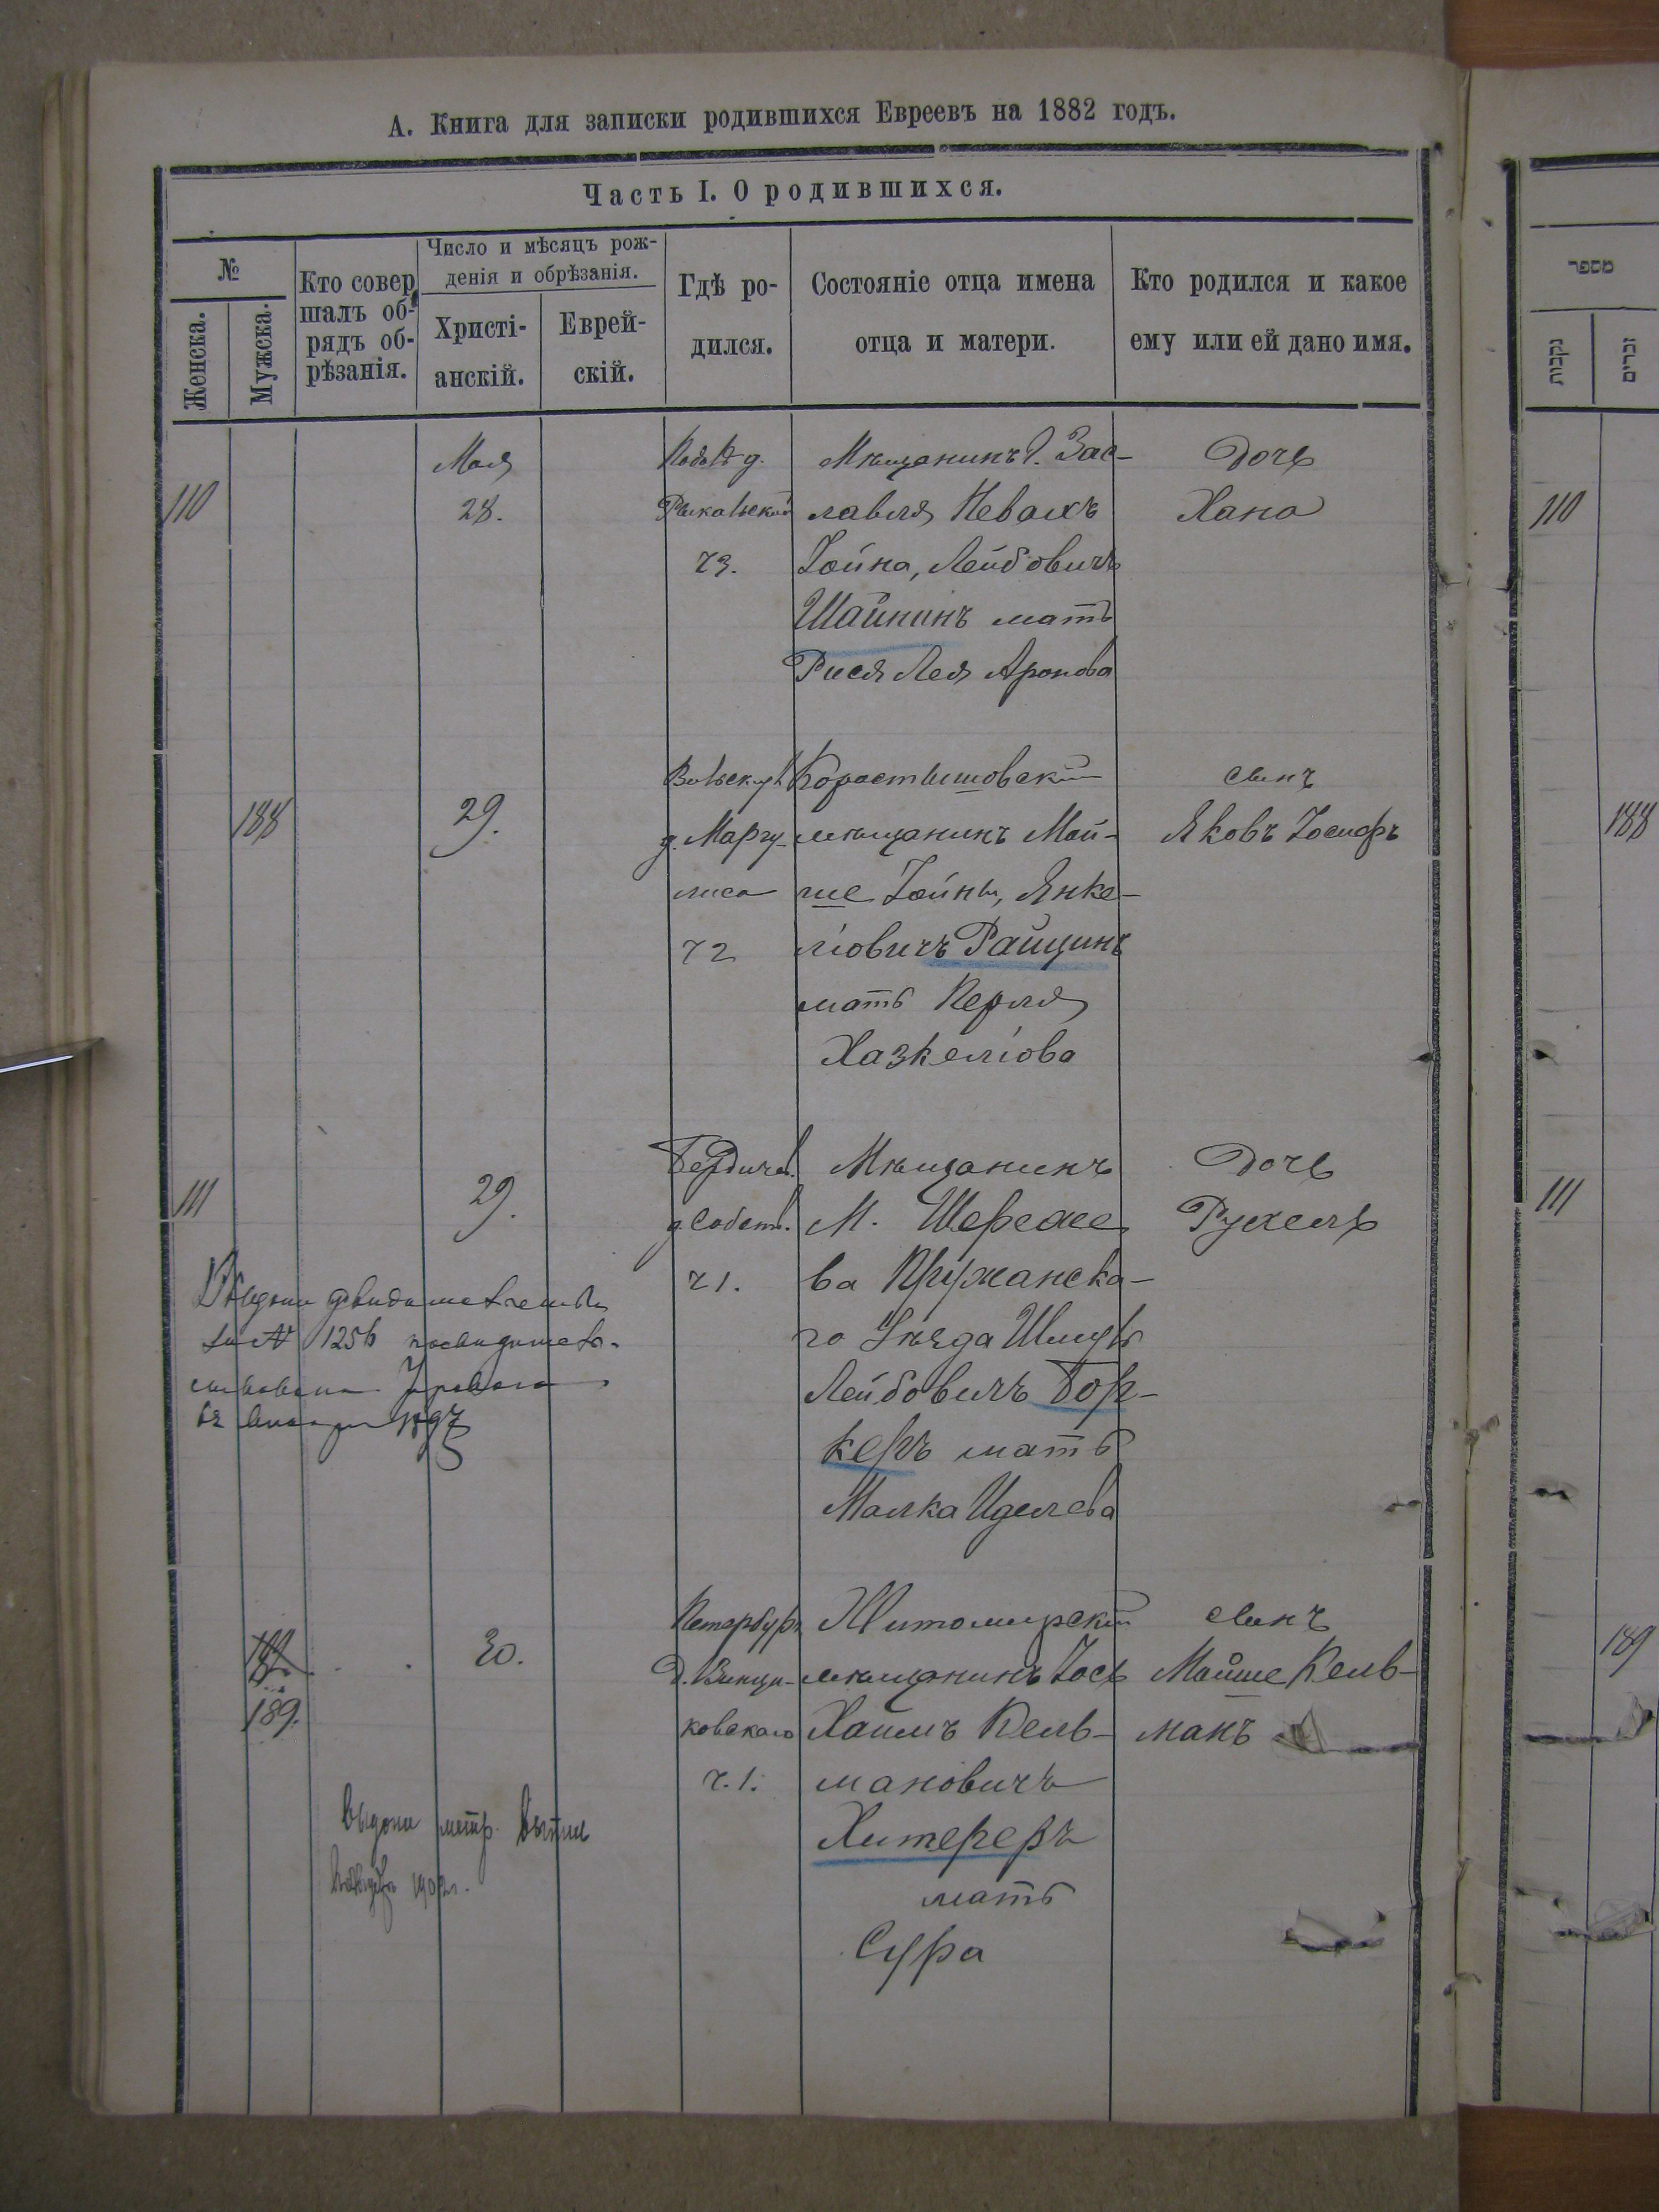 А. Книга для записки родившихся Евреевъ на 1882 годъ.
Часть I. О родившихся.
№
Женска.
Мужска.
Кто совер
шалъ об-
рядъ об-
рѣзанія.
Число и мѣсяцъ рож-
денія и обрѣзанія.
Христі-
анскій.
Еврей-
скій.
Гдѣ ро-
дился.
Состояніе отца имена
отца и матери.
Кто родился и какое
ему или ей дано имя.
מספר
נקבות
זכרים
110
Мая
28.
ч 3.
Мѣщанинъ г. Зас-
лавля Невахъ
Іойна, Лейбовичъ
Шайнинъ мать
Рися Лея Аронова
Дочь
Хана
110
188
29.
д. Маргу-
лиса
ч 2
Коростышовскій
мѣщанинъ Мой-
ше Іойнъ, Янке-
ліовичъ Райцинъ
мать Перля
Хазкеліова
сынъ
Яковъ Іосифъ
188
111
29.
Бердичев.
д. Собств.
ч 1.
Мѣщанинъ
М. Шереше
ва Пружанска-
го Уѣзда
Лейбовичъ Бор-
керъ мать
Малка Иделева
Дочь
Рухель
111
№ 1256
1897
189.
30.
Петербург.
д. Винци-
ковскаго
ч. 1.
Житомирскій
мѣщанинъ Іось
Хаимъ Кель-
мановичъ
Хитереръ
мать
Сура
сынъ
Мойше Кель-
манъ
189
Выдана метр. выпись
1902 г.